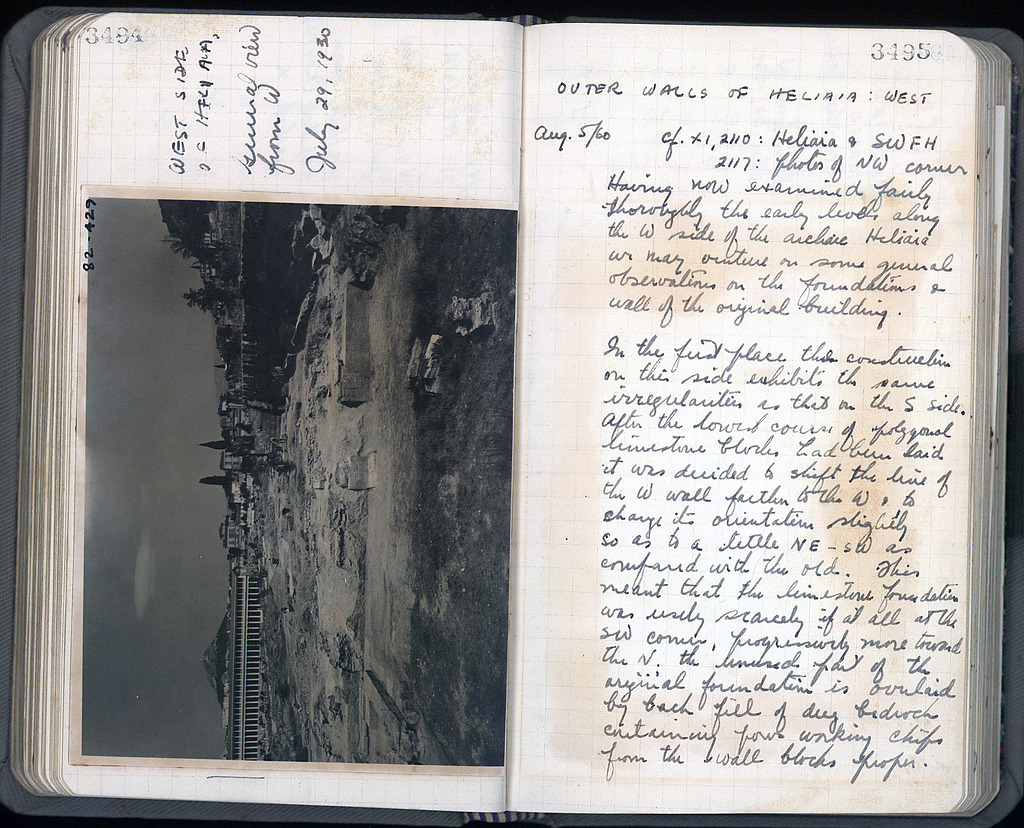 3494
WEST SIDE
OF HELIAIA,
general view
from W
July 29, 1930
82-429
3495
OUTER WALLS OF HELIAIA: WEST
Aug. 5/60 cf. XI, 2110: Heliaia & SWFH
2117: photos of NW corner
Having now examined fairly
thoroughly the early levels along
the W side of the archaic Heliaia
we may venture on some general
observations on the foundations &
wall of the original building.
In the first place the construction
on this side exhibits the same
irregularities as that on the S side.
After the lowest course of polygonal
limestone blocks had been laid
it was decided to shift the line of
the W wall farther to the W & to
change its orientation slightly
so as to a little NE-SW as
compared with the old. This
meant that the limestone foundation
was used scarcely if at all at the
SW corner, progressively more toward
the N. the unused part of the
original foundation is overlaid
by back fill of dug bedrock
containing poros working chips
from the wall blocks proper.